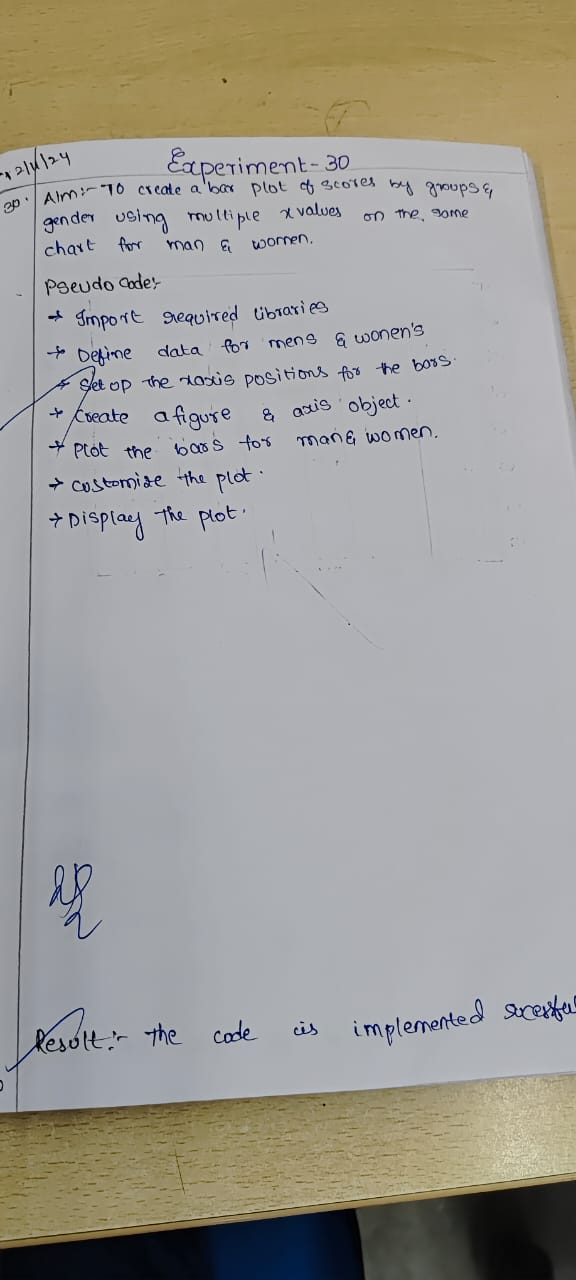 2/11/24
Experiment-30
30. Aim:- To create a bar plot of scores by groups &
gender using multiple x values on the same
chart for man & women.
Pseudo code:-
→ Import required libraries
→ Define data for mens & women's
→ Set up the xaxis positions for the bars.
→ Create a figure & axis object.
→ Plot the bars for man & women.
→ customize the plot.
→ Display the plot.
Result:- The code is implemented